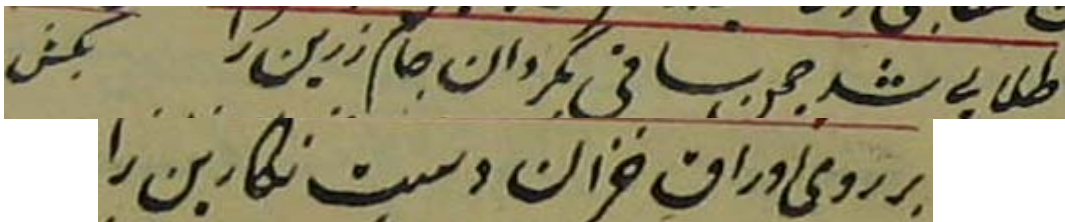 طلایی شد چمن ساقی بگردان جام زرین را بکش
بر روی اوراق خزان دست نگارین را